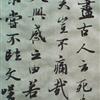 盡古人云死
矣豈不痛哉
興感之由若
嘗不臨文嗟